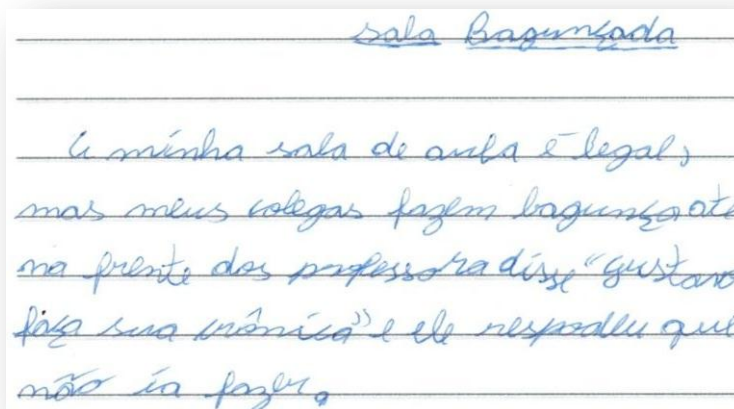 sala Bagunçada
A minha sala de aula é legal,
mas meus colegas fazem bagunça até
na frente dos professora disse "gustavo
faça sua crônica" e ele respodeu que
não ia fazer.